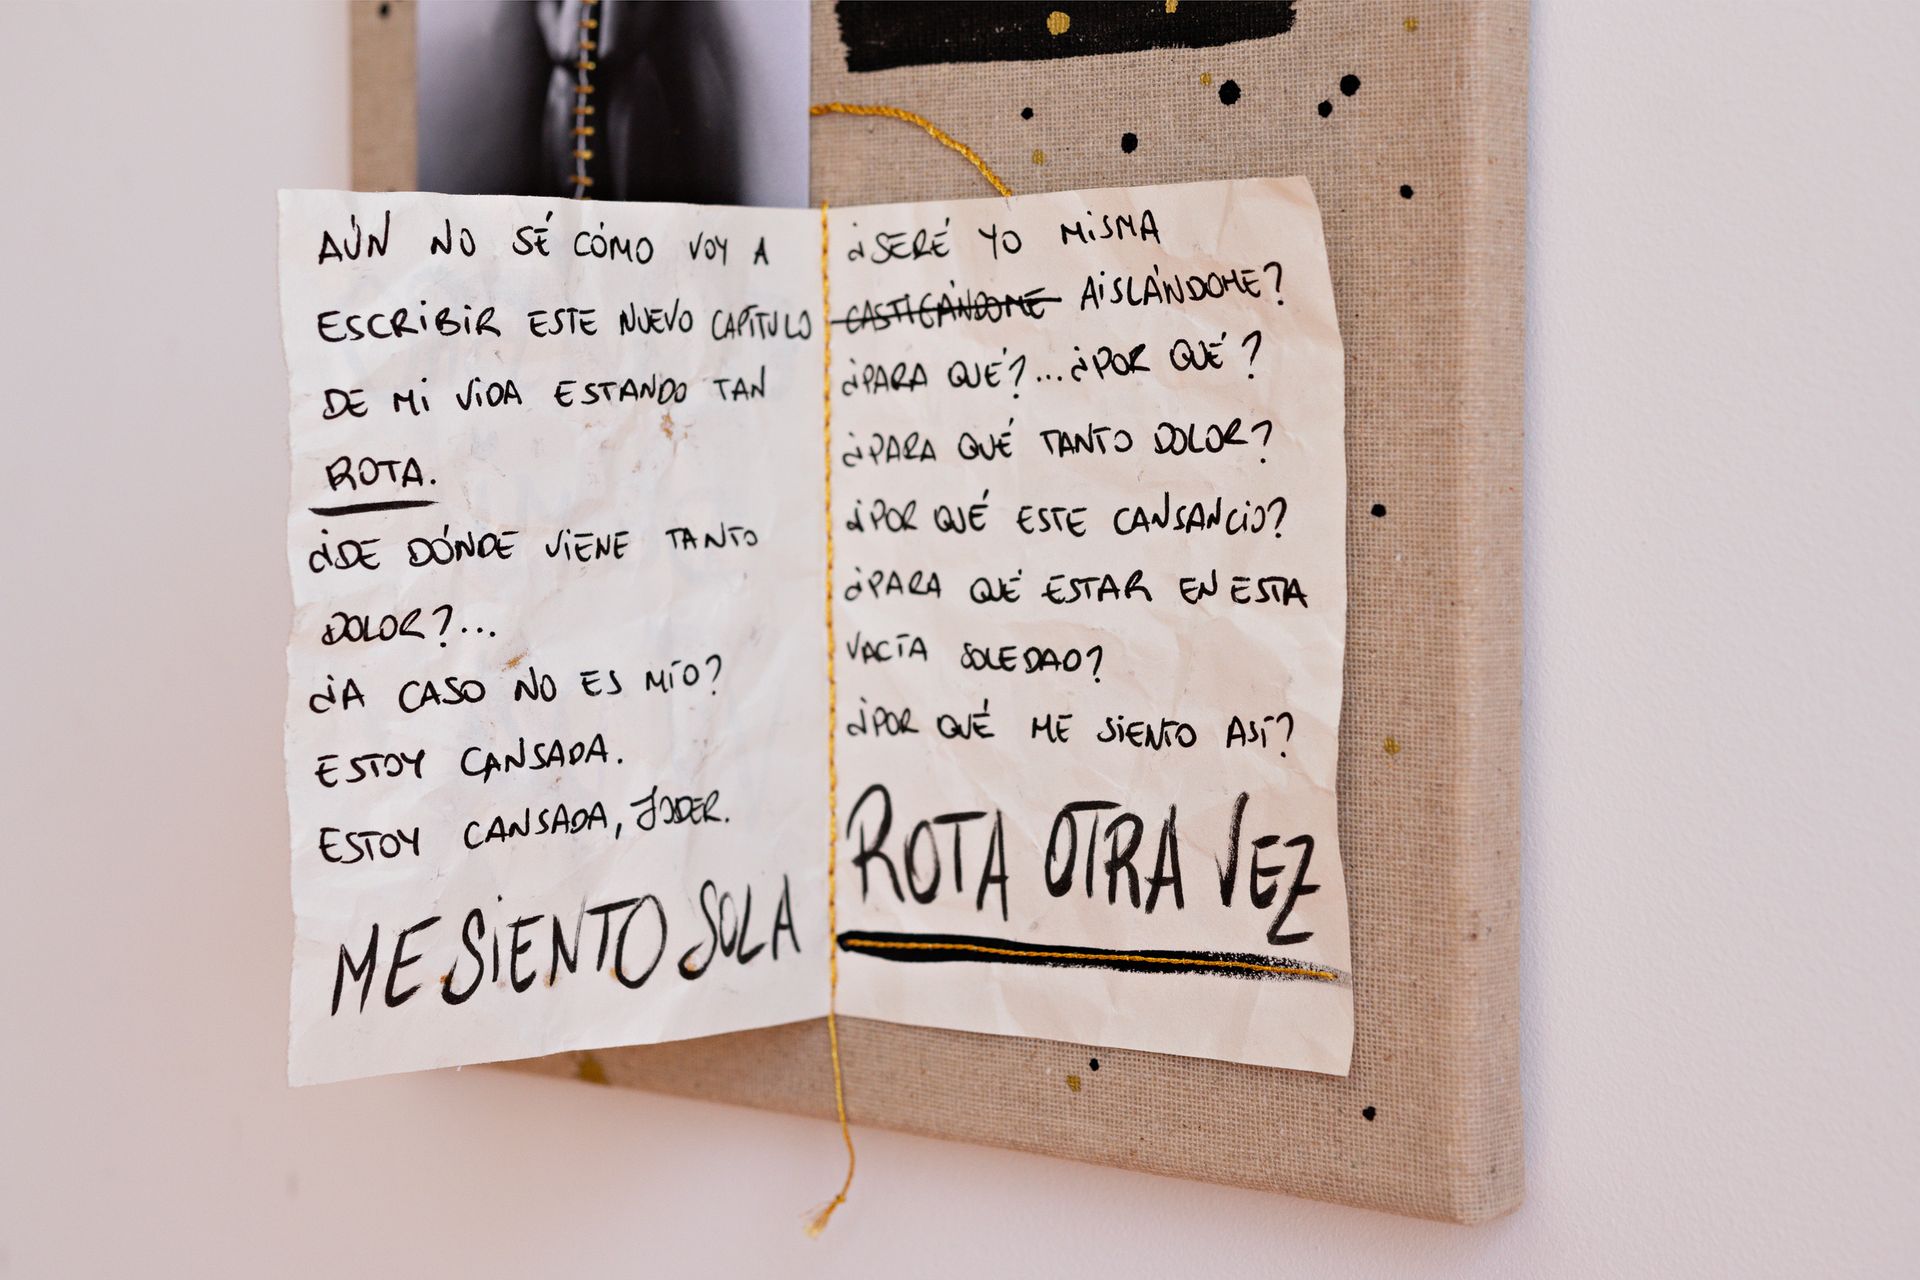 AÚN NO SÉ CÓMO VOY A
ESCRIBIR ESTE NUEVO CAPÍTULO
DE MI VIDA ESTANDO TAN
ROTA.
¿DE DÓNDE VIENE TANTO
DOLOR?...
¿A CASO NO ES MÍO?
ESTOY CANSADA.
ESTOY CANSADA, JODER.
ME SIENTO SOLA
¿SERÉ YO MISMA
CASTIGÁNDOME AISLÁNDOME?
¿PARA QUÉ?...¿POR QUÉ?
¿PARA QUÉ TANTO DOLOR?
¿POR QUÉ ESTE CANSANCIO?
¿PARA QUÉ ESTAR EN ESTA
VACÍA SOLEDAD?
¿POR QUÉ ME SIENTO ASÍ?
ROTA OTRA VEZ